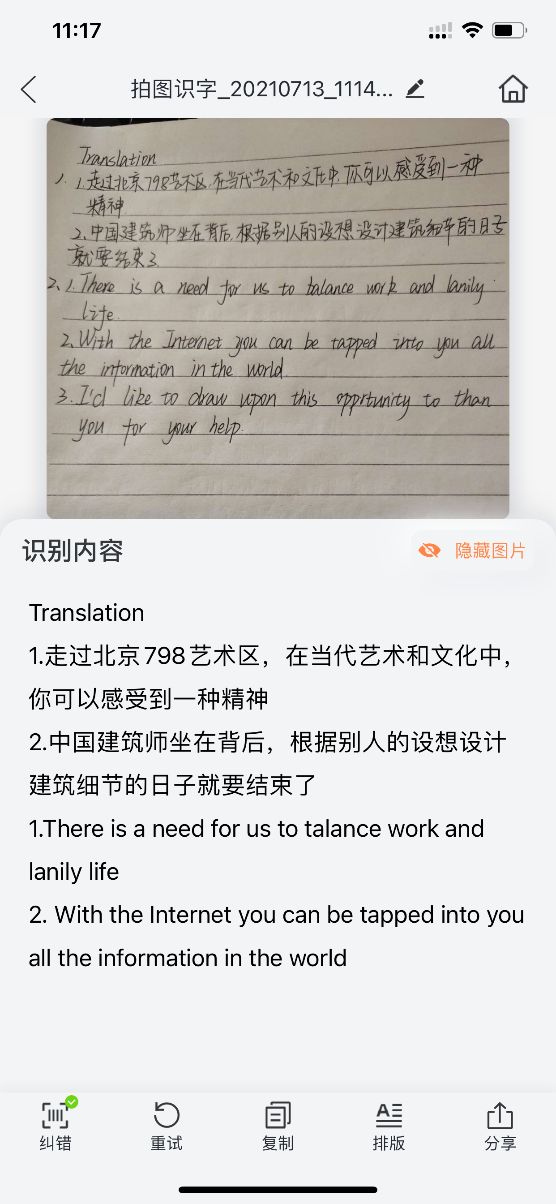 11:17
拍图识字_20210713_1114...
Translation
1. 1.走过北京798艺术区,在当代艺术和文化中,你可以感受到一种
精神
2.中国建筑师坐在背后,根据别人的设想设计建筑细节的日子
就要结束了
2、1.There is a need for us to balance work and lanily
life.
2.With the Internet you can be tapped into you all
the information in the world
3.I'd like to draw upon this opprtunity to than
you for your help.
识别内容
隐藏图片
Translation
1.走过北京798艺术区，在当代艺术和文化中，
你可以感受到一种精神
2.中国建筑师坐在背后，根据别人的设想设计
建筑细节的日子就要结束了
1.There is a need for us to talance work and
lanily life
2. With the Internet you can be tapped into you
all the information in the world
纠错
重试
复制
排版
分享